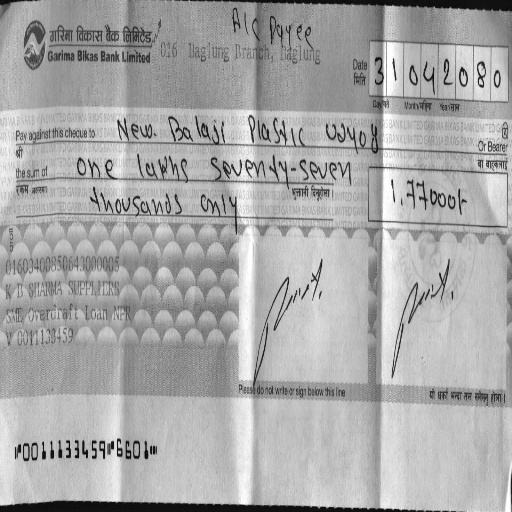 A/C Payee
गरिमा विकास बैंक लिमिटेड
Garima Bikas Bank Limited
016 Baglung Branch, Baglung
Date मिति 31042080
Day/गते Month/महिना Year/साल
Pay against this cheque to New. Balaji Plastic
श्री
Or Bearer
वा वाहकलाई
the sum of one lakhs seventy-seven
रकम अक्षरमा
thousands only
1,77000/-
01603400850643000005
K B SHARMA SUPPLIERS
SME Overdraft Loan NPR
V 0011133459
Please do not write or sign below this line
यो धर्का भन्दा तल नलेख्नु होला ।
"0011133459" 6601"